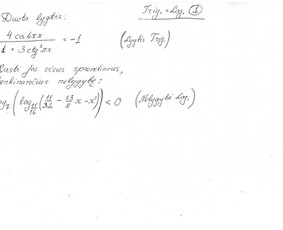 Trig. + Log. 1
Duota lygtis:
4 cos 4πx / (1 + 3 ctg²πx) = -1 (Lygtis Trig.)
Rasti jos visus sprendinius,
tenkinančius nelygybę:
log₇ (log (11/32 - 13/8 x - x²)) < 0 (Nelygybė Log.)